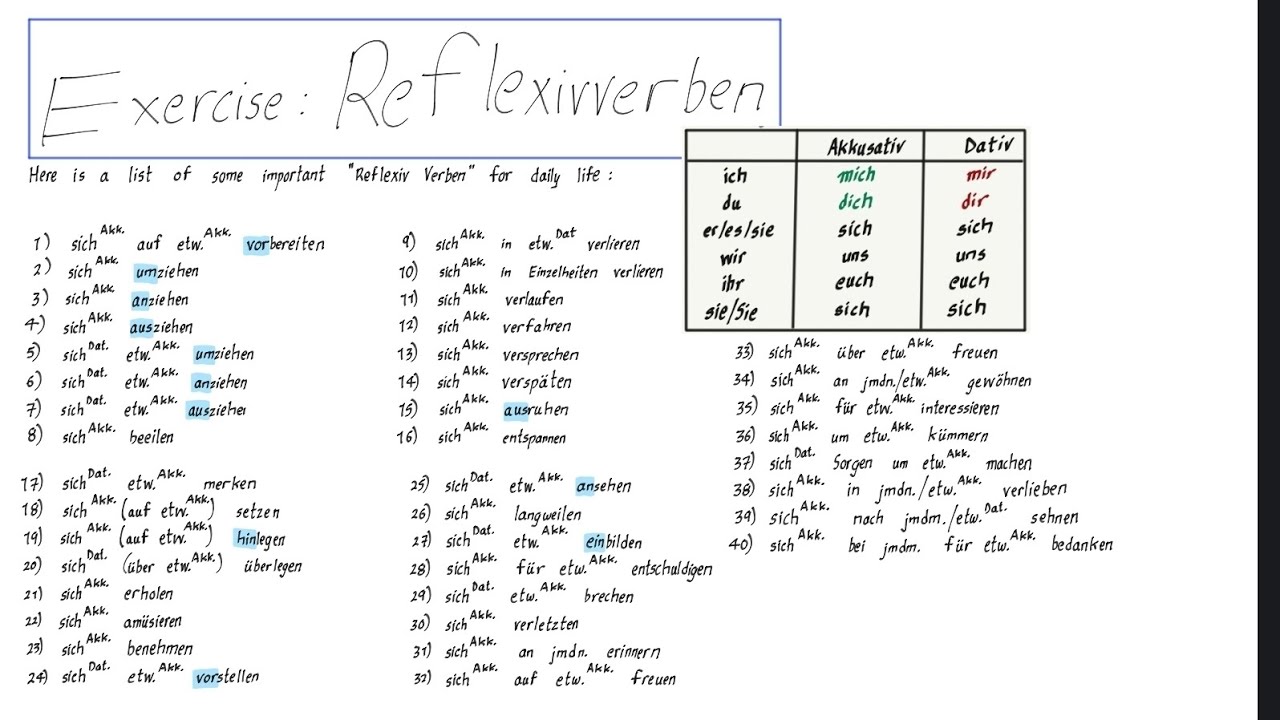 Exercise: Reflexivverben
Here is a list of some important "Reflexiv Verben" for daily life:
Akkusativ Dativ
ich mich mir
du dich dir
er/es/sie sich sich
wir uns uns
ihr euch euch
sie/Sie sich sich
1) sich Akk. auf etw. Akk. vorbereiten
2) sich Akk. umziehen
3) sich Akk anziehen
4) sich Akk. ausziehen
5) sich Dat. etw. Akk. umziehen
6) sich Dat. etw. Akk. anziehen
7) sich Dat. etw. Akk. ausziehen
8) sich Akk. beeilen
9) sich Akk. in etw. Dat verlieren
10) sich Akk. in Einzelheiten verlieren
11) sich Akk. verlaufen
12) sich Akk. verfahren
13) sich Akk. versprechen
14) sich Akk. verspäten
15) sich Akk. ausruhen
16) sich Akk. entspannen
17) sich Dat. etw. Akk. merken
18) sich Akk. (auf etw. Akk.) setzen
19) sich Akk. (auf etw. Akk.) hinlegen
20) sich Dat. (über etw. Akk.) überlegen
21) sich Akk. erholen
22) sich Akk. amüsieren
23) sich Akk. benehmen
24) sich Dat. etw. Akk. vorstellen
25) sich Dat. etw. Akk. ansehen
26) sich Akk. langweilen
27) sich Dat. etw. Akk. einbilden
28) sich Akk. für etw. Akk. entschuldigen
29) sich Dat. etw. Akk. brechen
30) sich Akk. verletzten
31) sich Akk. an jmdn. erinnern
32) sich Akk. auf etw. Akk. freuen
33) sich Akk. über etw. Akk. freuen
34) sich Akk. an jmdn./etw. Akk. gewöhnen
35) sich Akk. für etw. Akk. interessieren
36) sich Akk. um etw. Akk. kümmern
37) sich Dat. Sorgen um etw. Akk. machen
38) sich Akk. in jmdn./etw. Akk. verlieben
39) sich Akk. nach jmdm./etw. Dat. sehnen
40) sich Akk. bei jmdm. für etw. Akk. bedanken